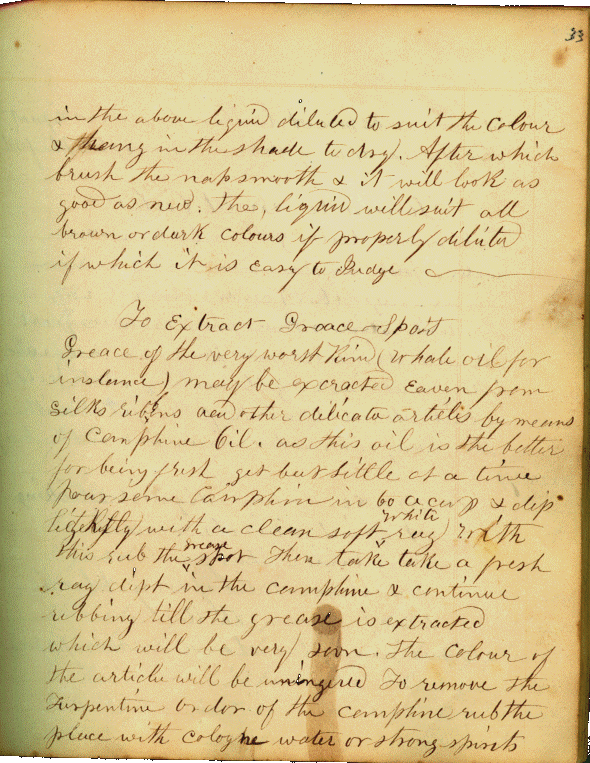 33
in the above liquid diluted to suit the Colour
& hang in the shade to dry. After which
brush the nap smooth & it will look as
good as new. The, liquid will suit all
brown or dark colours if properly diluted
if which it is easy to Judge
To Extract Greace Spoit
Greace of the very worst Kind (Whale oil for
instance) may be excracted eaven from
silks ribbns and other dilicate articlis by means
of Camphine Oil. as this oil is the better
for being fresh get but little at a time
Pour some Camphin in to a cup & dip
lightly with a clean soft white rag With
this rub the grease spot Then take take a fresh
rag dipt in the camphine & continue
ribbing till the grease is extracted
which will be very soon. The Colour of
the article will be uningered To remove the
Turpentine Or dor of the camphine rub the
place with cologne water or strong spirits